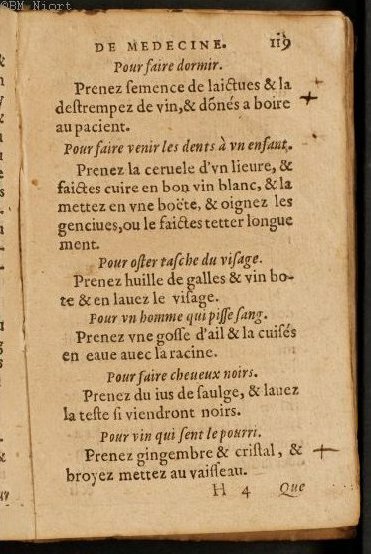 ©BM Niort
DE MEDECINE. 119
Pour faire dormir.
Prenez ſemence de laictues & la
deſtrempez de vin, & dōnés a boire
au pacient.
Pour faire venir les dents à vn enfant.
Prenez la ceruele d'vn lieure, &
faictes cuire en bon vin blanc, & la
mettez en vne boëte, & oignez les
genciues, ou le faictes tetter longue
ment.
Pour oſter taſche du viſage.
Prenez huille de galles & vin bo-
te & en lauez le viſage.
Pour vn homme qui piſſe ſang.
Prenez vne goſſe d'ail & la cuiſés
en eaue auec la racine.
Pour faire cheueux noirs.
Prenez du ius de ſaulge, & lauez
la teſte ſi viendront noirs.
Pour vin qui ſent le pourri.
Prenez gingembre & criſtal, &
broyez mettez au vaiſſeau.
H 4 Que